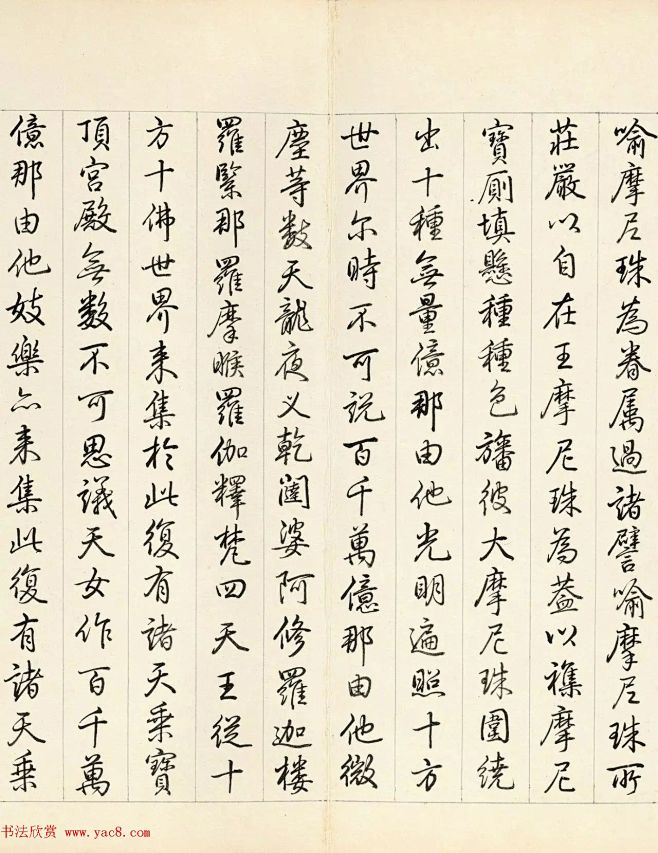 喻摩尼珠為眷属過諸譬喻摩尼珠所
莊嚴以自在王摩尼珠為葢以襍摩尼
寶厠填懸種種色旛彼大摩尼珠圍繞
出十種無量億那由他光明遍照十方
世界尔時不可説百千萬億那由他微
塵等数天龍夜乂乾闼婆阿修羅迦楼
羅緊那羅摩睺羅伽釋梵四天王從十
方十佛世界来集於此復有諸天乗寶
頂宫殿無数不可思議天女作百千萬
億那由他妓樂亦来集此復有諸天乗
书法欣赏 www.yac8.com